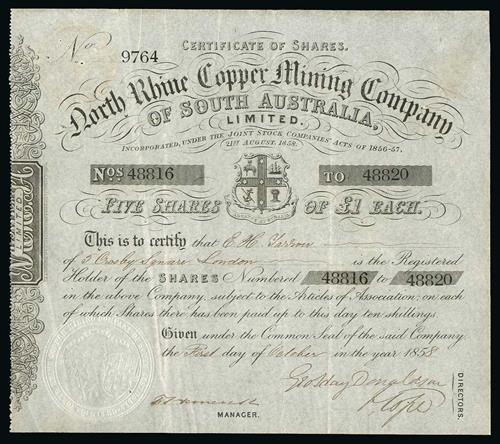 No. 9764
CERTIFICATE OF SHARES.
North Rhine Copper Mining Company
OF SOUTH AUSTRALIA,
LIMITED.
INCORPORATED, UNDER THE JOINT STOCK COMPANIES' ACTS OF 1856-57.
21ST AUGUST, 1858.
Nos 48816 TO 48820
FIVE SHARES OF £1 EACH.
This is to certify that E. H.
of 5 Crosby Square London is the Registered
Holder of the SHARES Numbered 48816 to 48820
in the above Company, subject to the Articles of Association; on each
of which Shares there has been paid up to this day ten shillings.
Given under the Common Seal of the said Company
the First day of October in the year 1858
Geo Hay Donaldson
MANAGER.
DIRECTORS.
LIMITED